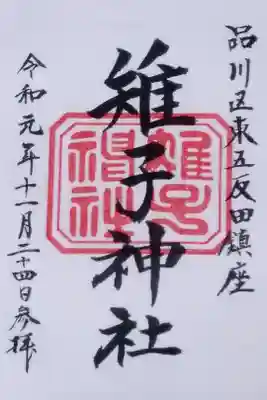 品川区東五反田鎮座
雉子神社
令和元年十一月二十四日参拝